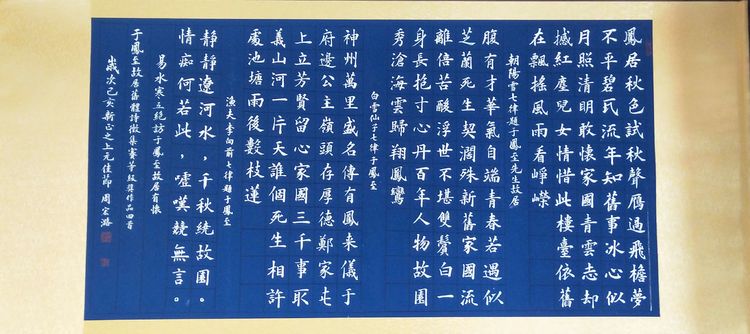 鳳居秋色試秋聲鴈過飛檐夢
不平碧瓦流年知舊事冰心似
月照清明敢懷家國青雲志却
撼紅塵兒女情惜此樓臺依舊
在飄搖風雨看崢嶸
朝陽雪七律題于鳳至先生故居
腹有才華氣自端青春若遇似
芝蘭死生契闊殊新舊家國流
離倍苦酸浮世不堪雙鬢白一
身長抱寸心丹百年人物故園
秀滄海雲歸翔鳳鸞
白雲仙子七律于鳳至
神州萬里盛名傳有鳳來儀于
府邊公主嶺頭存厚德鄭家屯
上立芳賢留心家國三千事取
義山河一片天誰個死生相許
處池塘雨後數枝蓮
漁夫李向前七律題于鳳至
靜靜遼河水，千秋繞故園。
情痴何若此，噓嘆競無言。
易水寒五絕訪于鳳至故居有懷
于鳳至故居舊體詩徵集賽等級獎作品四首
歲次己亥新正之上元佳節 周宏